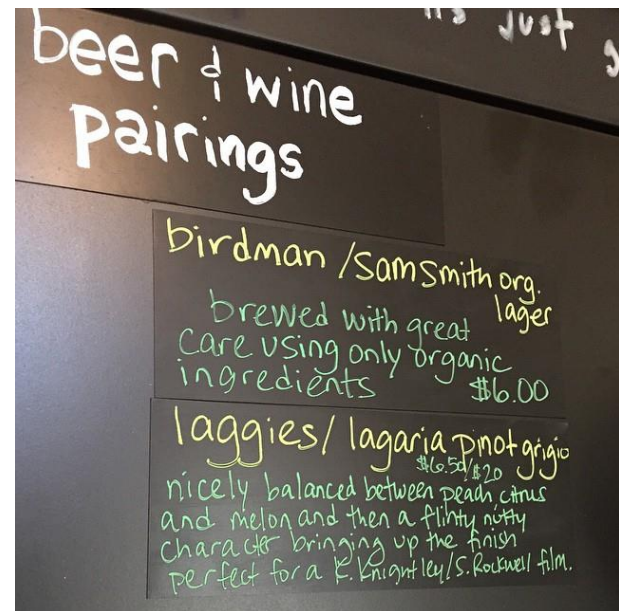 its just g
beer & wine
pairings
birdman /samsmith org.
lager
brewed with great
care using only organic
ingredients $6.00
laggies/ lagaria pinot grigio
$6.50/$20
nicely balanced between peach citrus
and melon and then a flinty nutty
character bringing up the finish
perfect for a K. Knightley/S. Rockwell film.